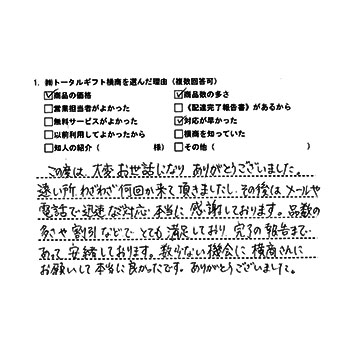 1. ㈱トータルギフト横商を選んだ理由（複数回答可）
☑商品の価格 ☑商品数の多さ
□営業担当者がよかった □《配達完了報告書》があるから
□無料サービスがよかった ☑対応が早かった
□以前利用してよかったから □横商を知っていた
□知人の紹介（ 様） □その他（ ）
この度は、大変お世話になり ありがとうございました。
遠い所 わざわざ何回か来て頂きましたし、その後はメールや
電話で迅速な対応 本当に感謝しております。品数の
多さや 割引などで とても満足しており 完了の報告まで
あって 安緒しております。数少ない機会に 横商さんに
お願いして本当に良かったです。ありがとうございました。